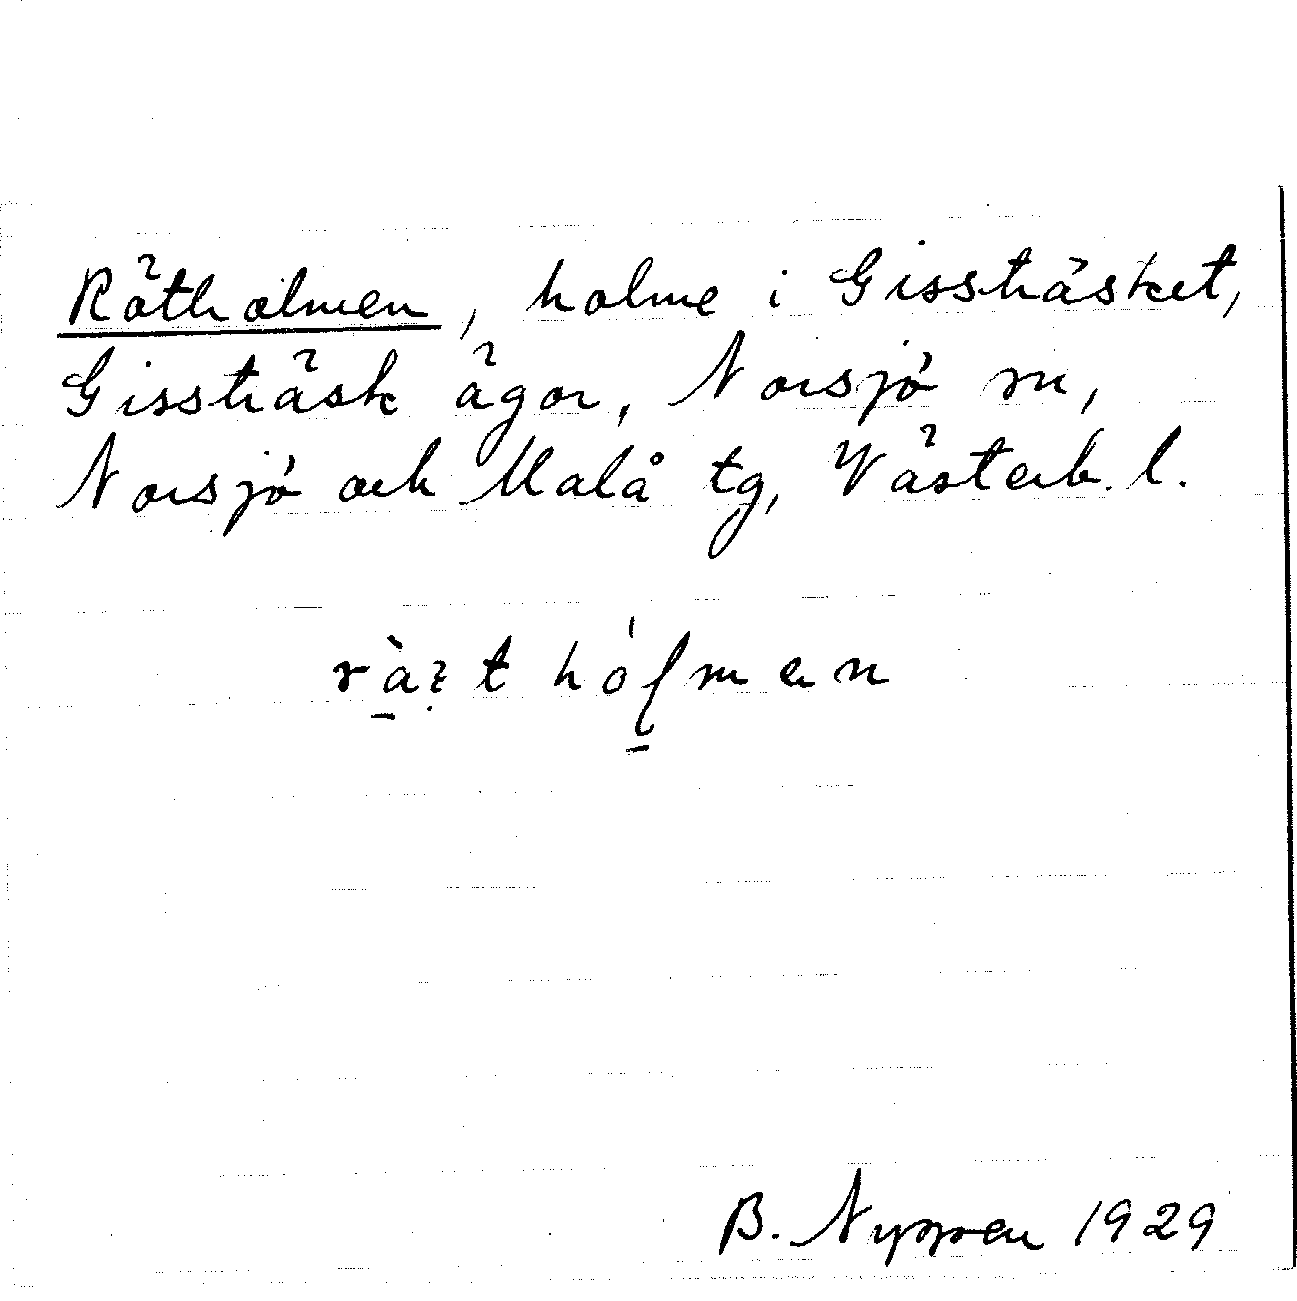 Råtholmen, holme i Gissträsket,
Gissträsk ägor, Norsjö sn,
Norsjö och Malå tg, Västerb. l.
B. Nyman 1929